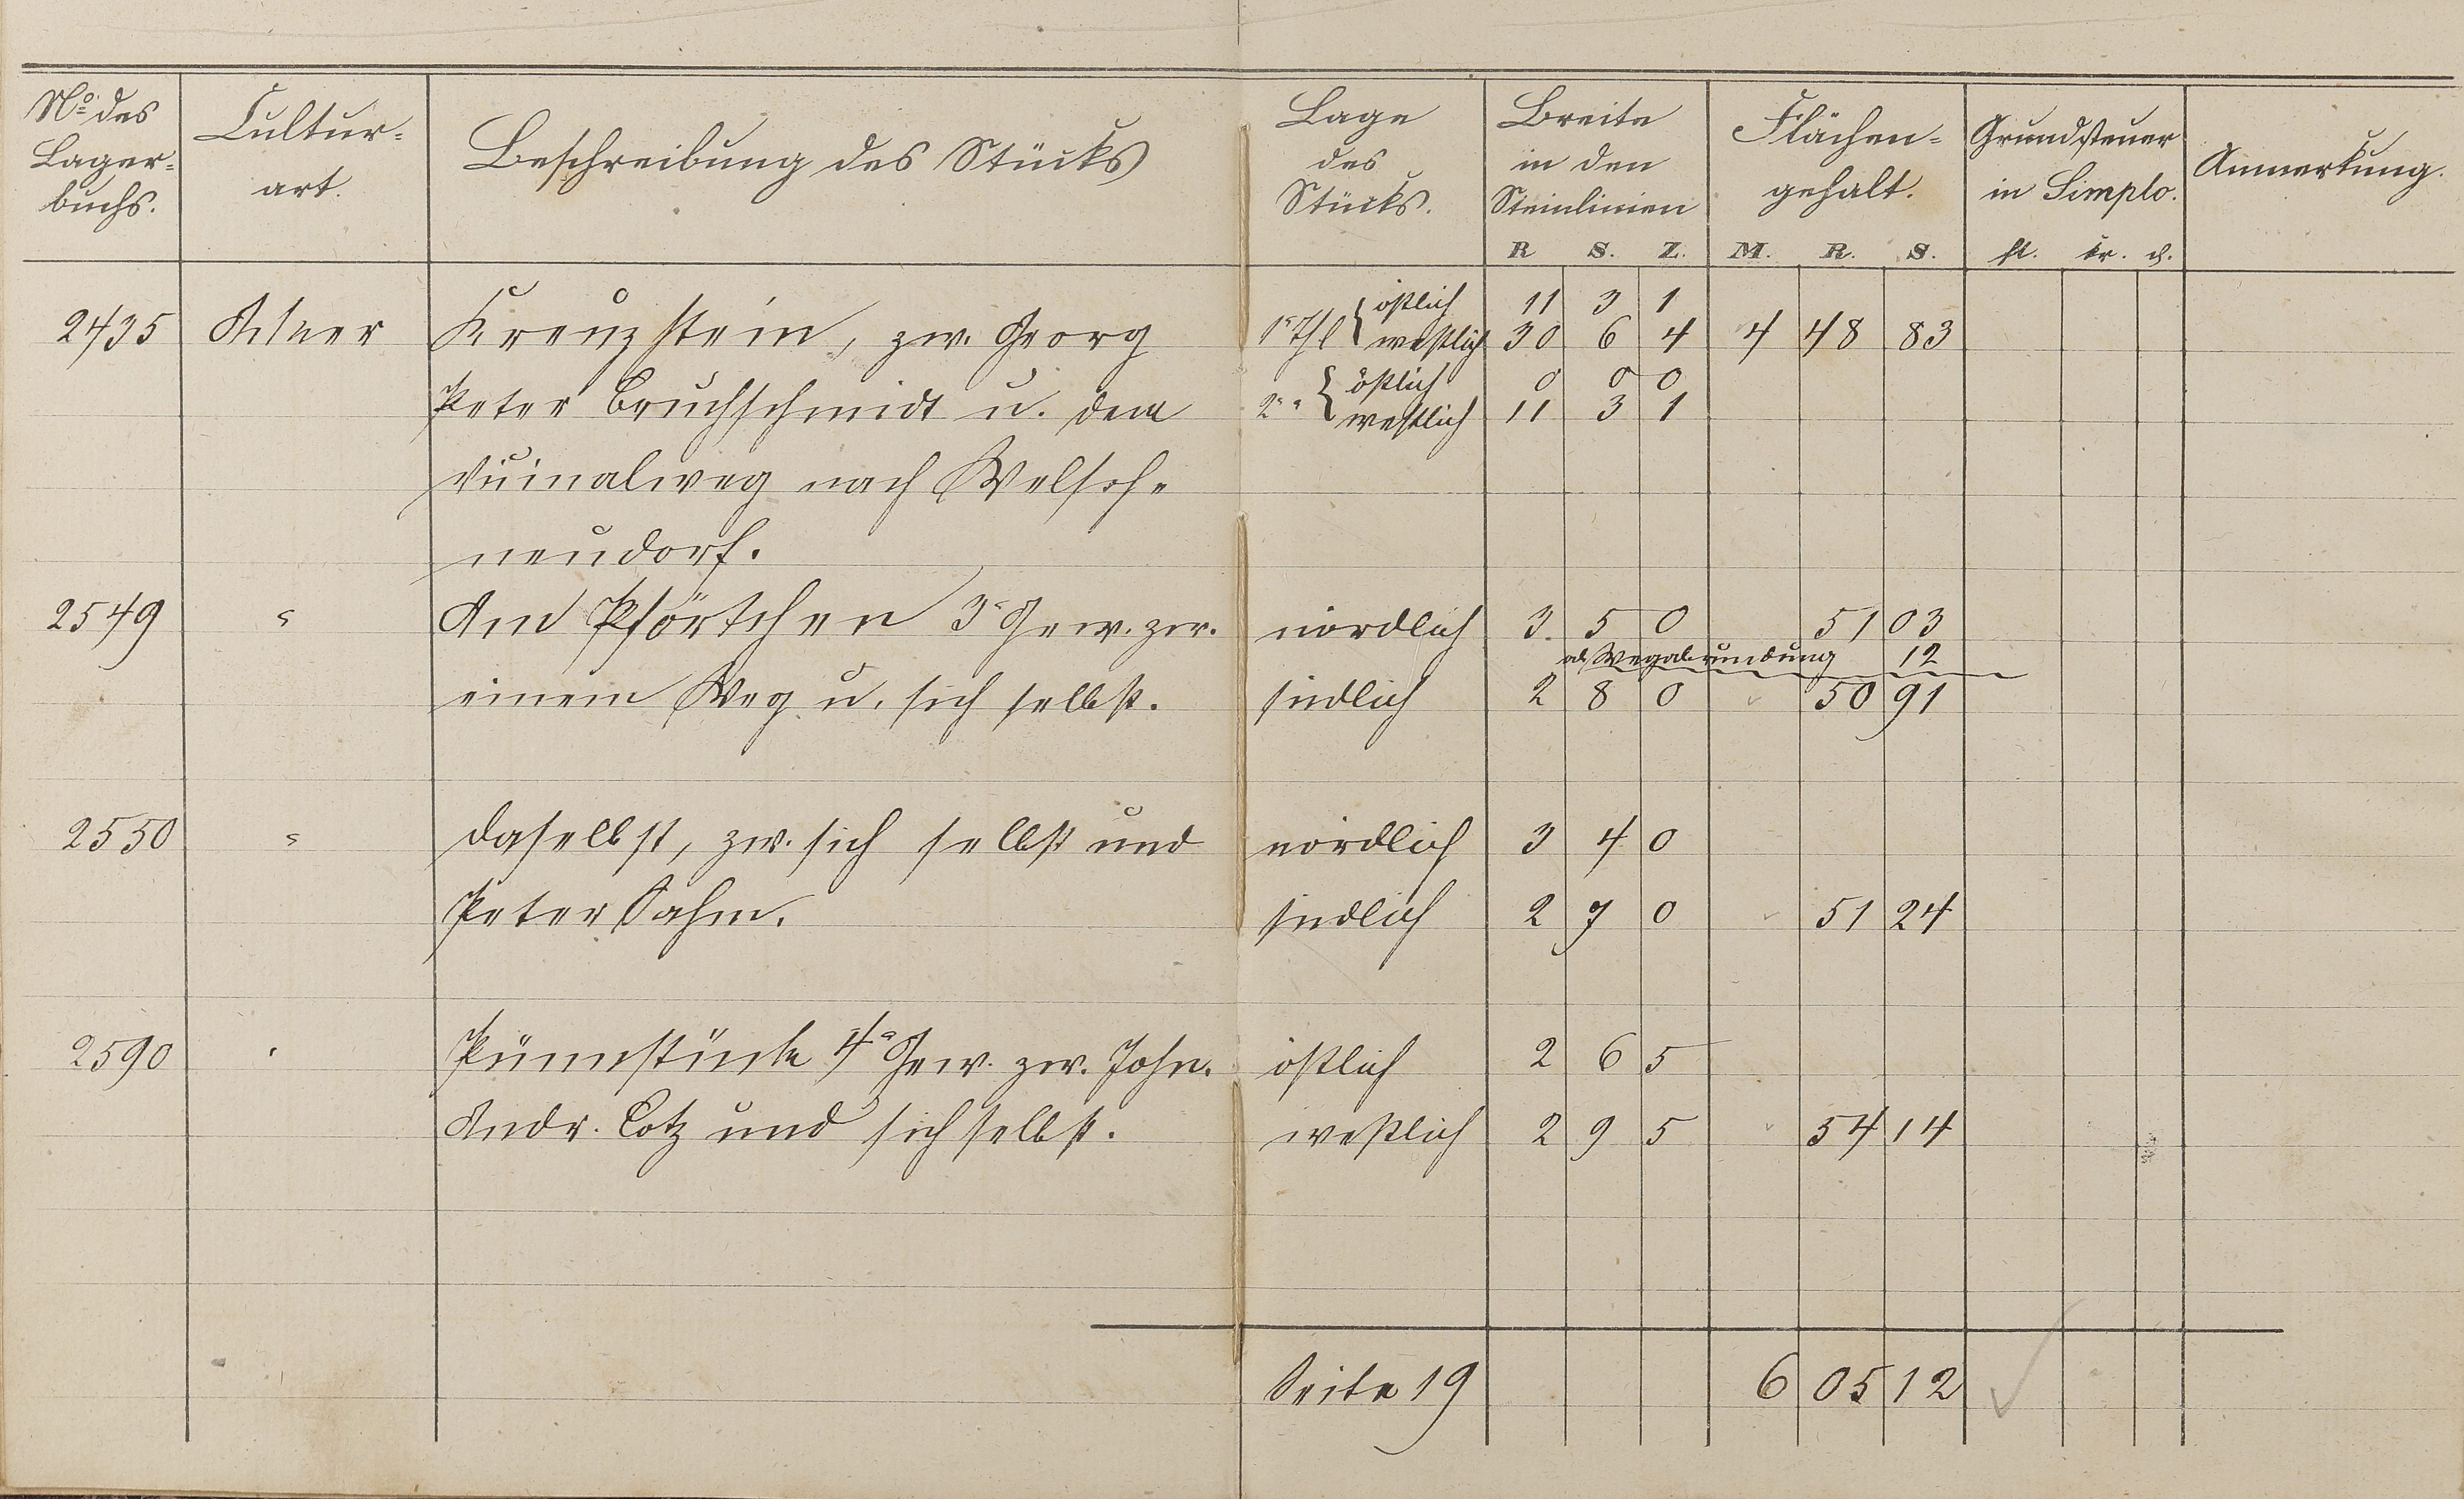 No. des Lagerbuchs. Cultur-art. Beschreibung des Stücks Lage des Stücks. Breite in den Steinlinien Flächen-gehalt. Grundsteuer in Simplo. Anmerkung.
R S. Z. M. R. S. fl. kr. d.
1r Thl östlich 11 3 1
2435 Acker Kreuzstein, zw. Georg westlich 30 6 4 4 48 83
östlich 0 0 0
Peter Bruchschmidt u. dem 2r " westlich 11 3 1
Vicinalweg nach Welsch-
neudorf.
2549 " Am Pförtchen 3r Gew. zw. nördlich 3. 5 0 51 03
ab Wegabrundung 12
einem Weg u. sich selbst. südlich 2 8 0 50 91
2550 " daselbst, zw. sich selbst und nördlich 3 4 0
Peter Sahm. südlich 2 7 0 51 24
2590 " Pümmstücke 4r Gew. zw. John. östlich 2 6 5
Andr. Lotz und sich selbst. westlich 2 9 5 54 14
Seite 19 6 05 12